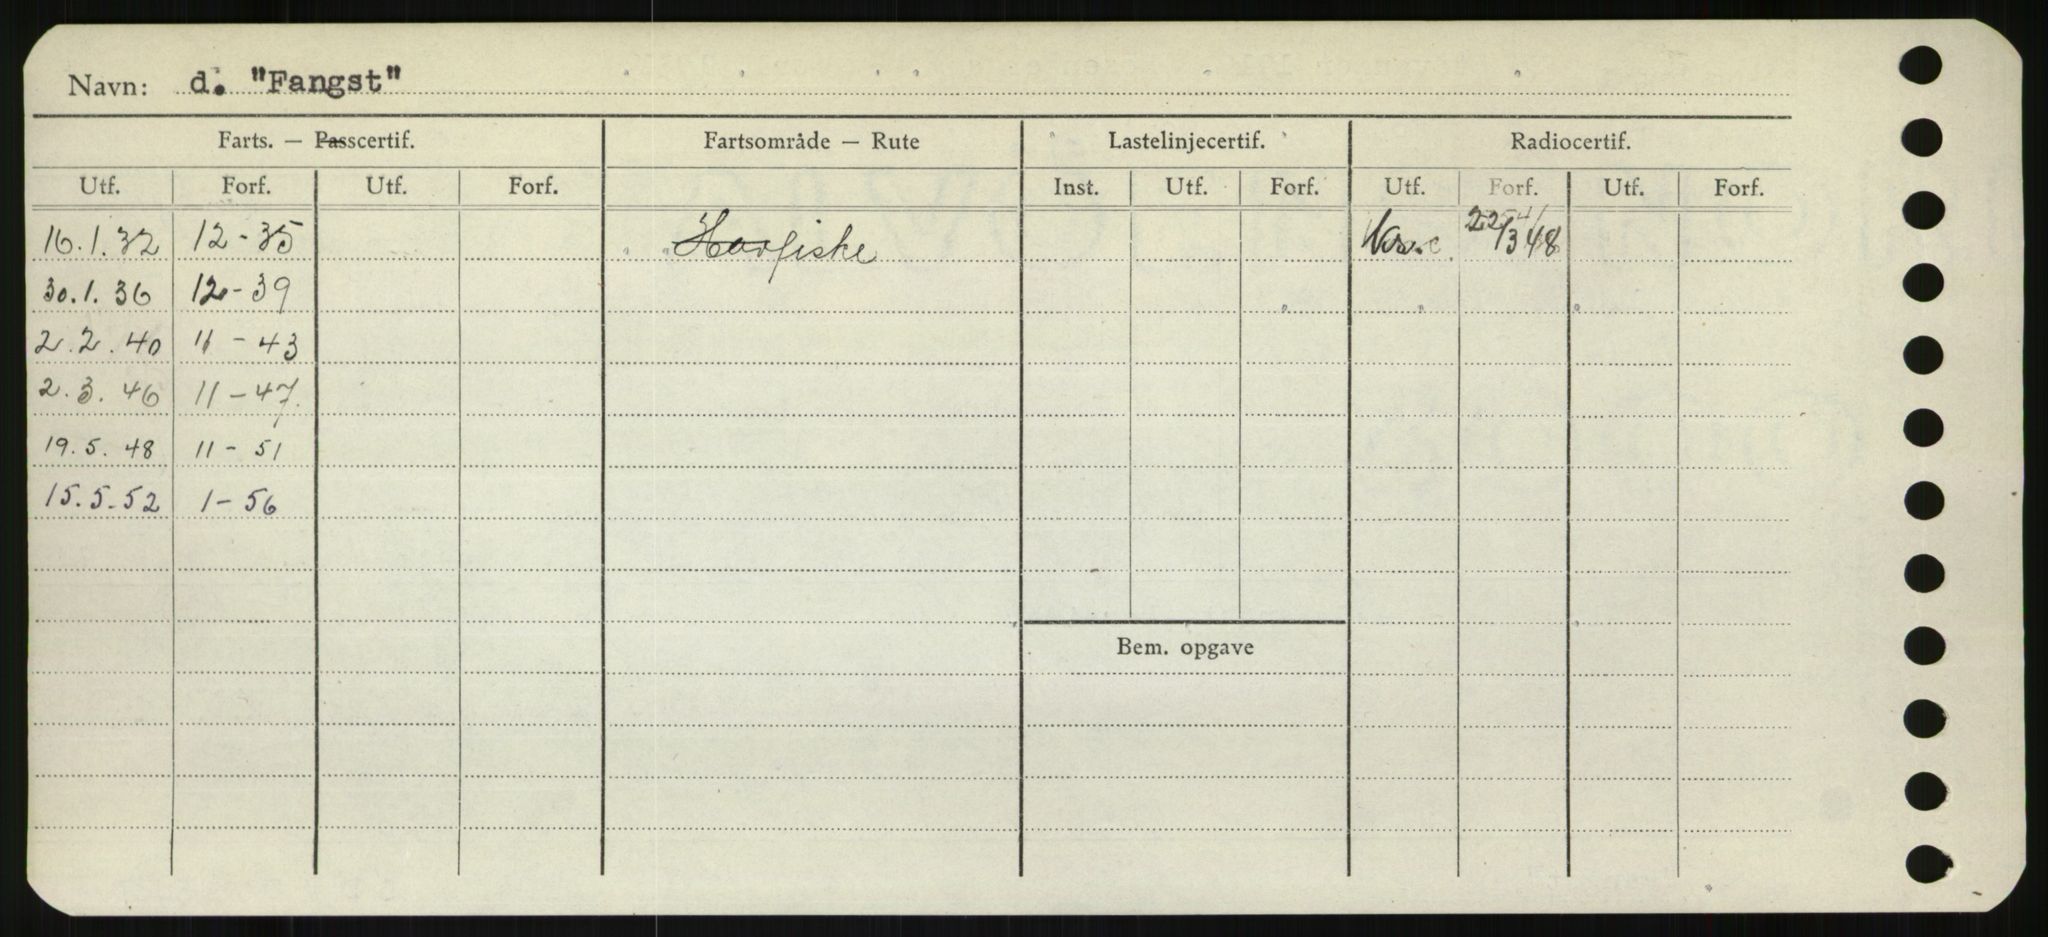 Navn: d. "Fangst"
Farts. — Passcertif. Fartsområde — Rute Lastelinjecertif. Radiocertif.
Utf. Forf. Utf. Forf. Inst. Utf. Forf. Utf. Forf. Utf. Forf.
16.1.32 12-35 Havfiske 22/3 48
30.1.36 12-39
2.2.40 11-43
2.3.46 11-47.
19.5.48 11-51
15.5-52 1-56
Bem. opgave